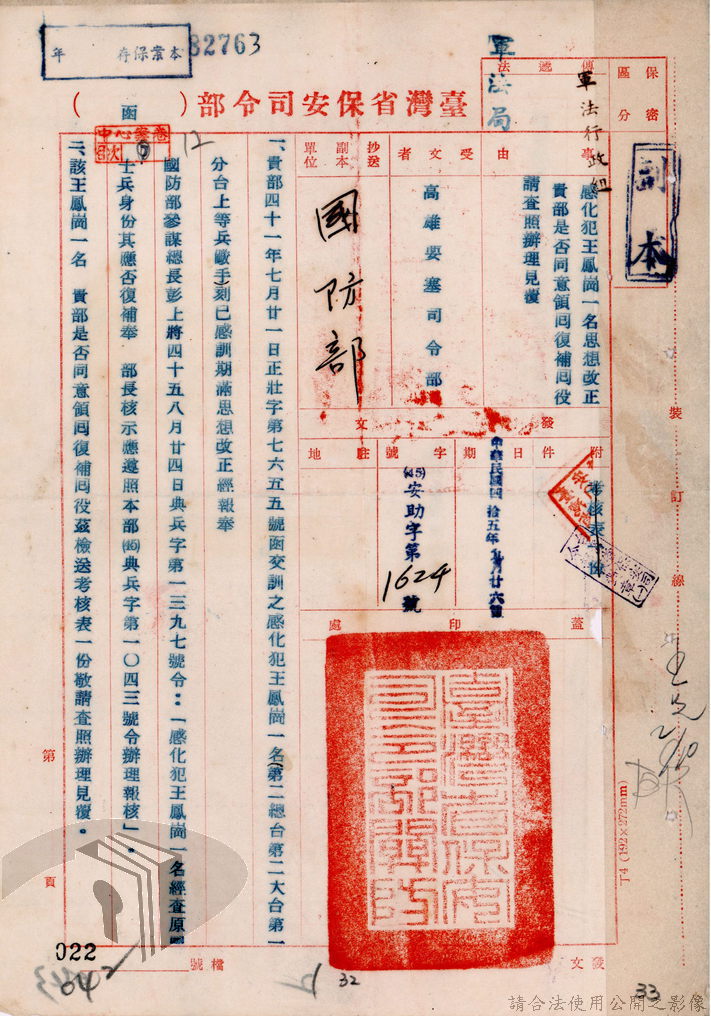 82763
本案保存　年
臺灣省保安司令部（函）
傳遞法
保密區分
軍法局
軍法行政組
副本
事由
感化犯王鳳崗一名思想改正
貴部是否同意領囘復補囘役
請查照辦理見覆
受文者
高雄要塞司令部
抄送副本單位
國防部
發文
附件
考核表一份
日期
中華民國四拾五年九月廿六日
字號
(45)安助字第1624號
駐地
蓋印處
臺灣省保安司令部關防
中心案卷
目次
12
一、貴部四十一年七月廿一日正壯字第七六五五號函交訓之感化犯王鳳崗一名(第二總台第二大台第一
分台上等兵砲手)刻已感訓期滿思想改正經報奉
國防部參謀總長彭上將四十五八月廿四日典兵字第一三九七號令：「感化犯王鳳崗一名經查原屬
士兵身份其應否復補奉　部長核示應遵照本部(45)典兵字第一〇四三號令辦理報核」。
二、該王鳳崗一名　貴部是否同意領囘復補囘役茲檢送考核表一份敬請查照辦理見覆。
裝訂線
丁4 (192×272mm)
第　頁
022
042
檔號
32
發文
33
請合法使用公開之影像